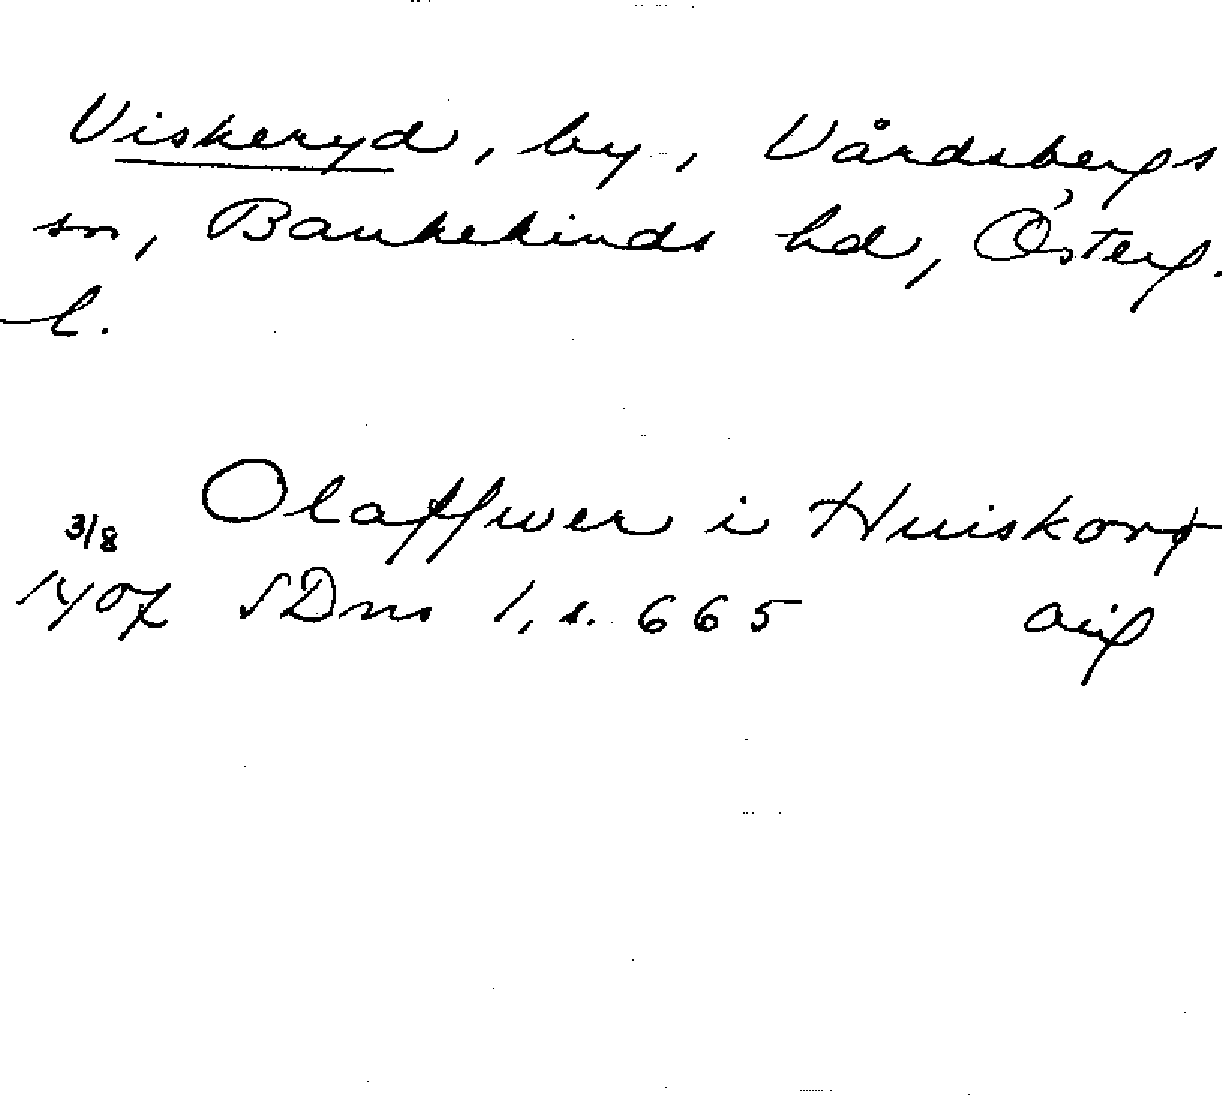 Viskeryd, by, Vårdsbergs
sn, Bankekinds hd, Österg.
l.
Olaffwer i Huiskorp
3/8
1407 SDns 1, s. 665 avig